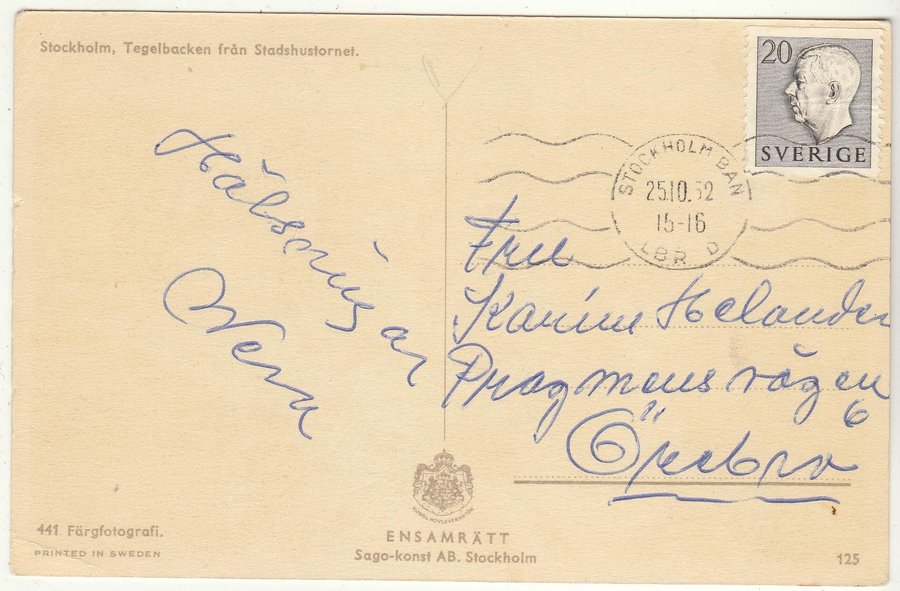 Stockholm, Tegelbacken från Stadshustornet.
20
SVERIGE
STOCKHOLM BAN
25.10.52
15-16
LBR D
Hälsningar
Wera
Karin Helander
6
Örebro
441 Färgfotografi.
PRINTED IN SWEDEN
ENSAMRÄTT
Sago-konst AB. Stockholm
125